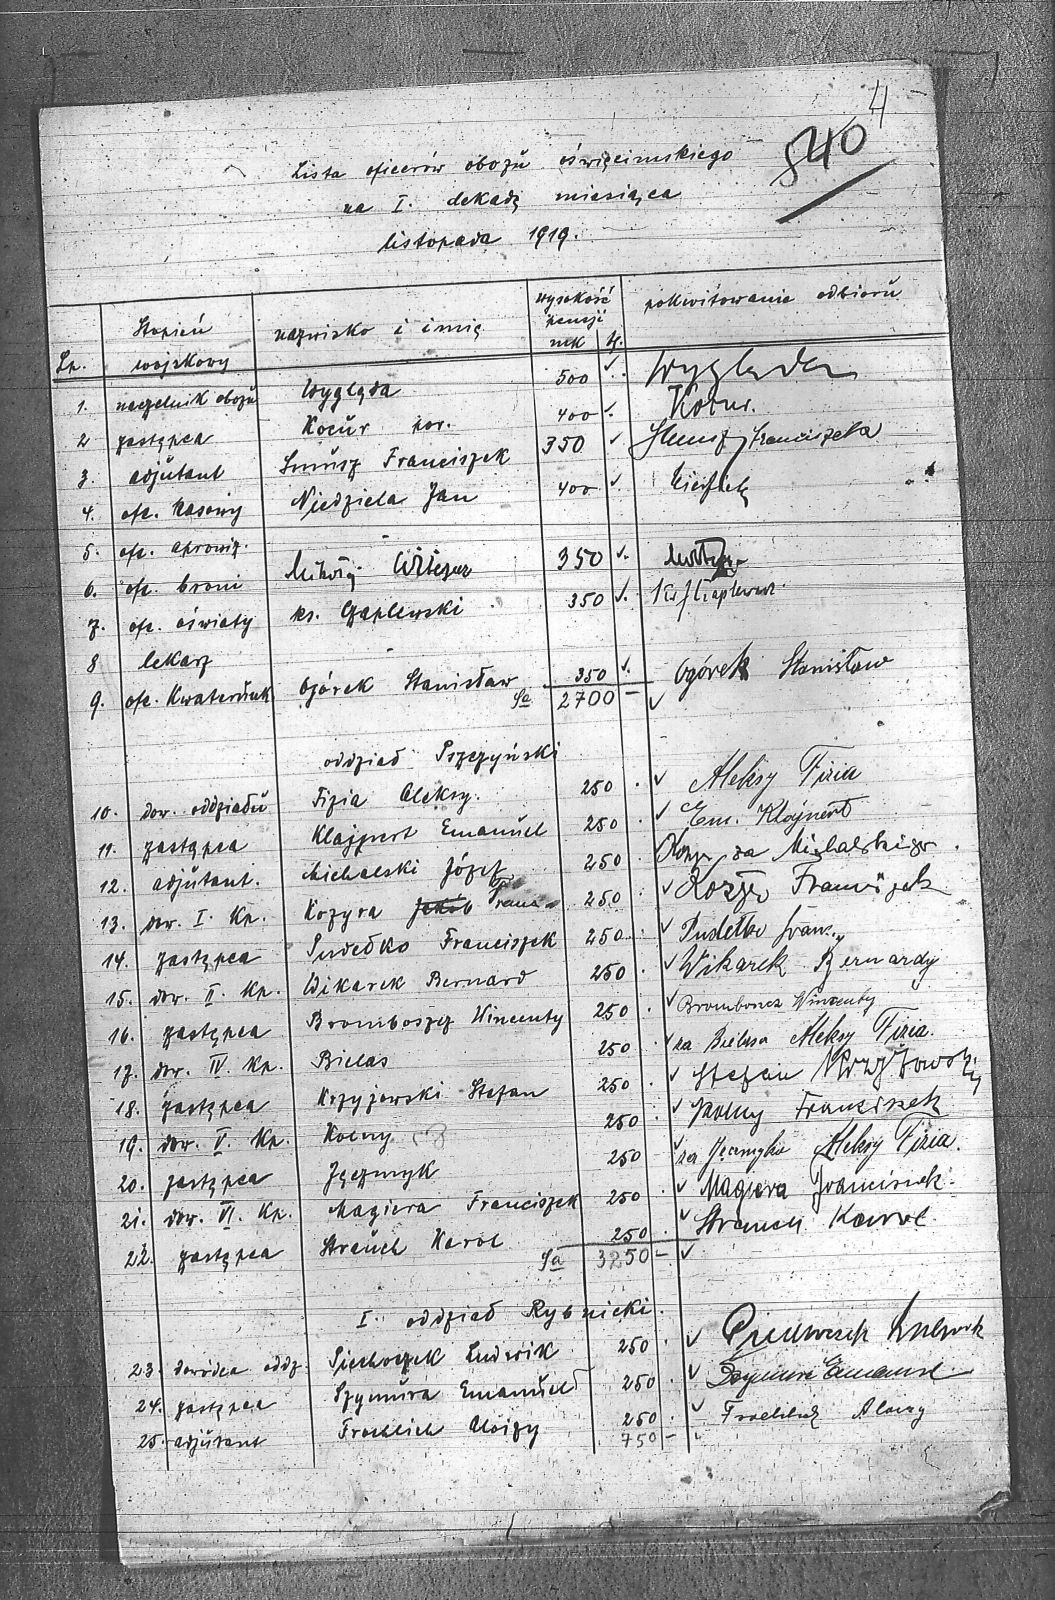 4
840
Lista oficerów obozu oświęcimskiego
na I. dekadę miesiąca
listopada 1919.
Lp. Stopień wojskowy nazwisko i imię wysokość pensji mk f. pokwitowanie odbioru
1. naczelnik obozu Wyględa 500 Wyględa
2 zastępca Kocur por. 400 Kocur.
3. adjutant Smusz Franciszek 350 Franciszek
4. ofc. kasowy Niedziela Jan 400
5. ofc. aprowiz.
6. ofc. broni 350
7. ofc. oświaty ks. Czaplewski 350
8 lekarz
9. ofc. Kwaterunk Ogórek Stanisław 350 Ogórek Stanisław
Sa 2700 –
oddział Pszczyński
10. dow. oddziału Fizia Aleksy. 250 Aleksy Fizia
11. zastępca Klajnert Emanuel 250 Em. Klajnert
12. adjutant. Michalski Józef 250 za Michalskiego
13. dow. I. Kp. Kozyra Jakób Franc. 250 Franciszek
14. zastępca Pudełko Franciszek 250 Pudełko Franc.
15. dow. II. Kp. Wikarek Bernard 250 Wikarek Bernardy
16. zastępca Bromboszcz Wincenty 250 Bromboszcz Wincenty
17. dow. IV. Kp. Bielas 250 za Bielasa Aleksy Fizia.
18. zastępca Krzyżowski Stefan 250 Stefan Krzyżowski
19. dow. V. Kp. Kolny 250 Kolny Franciszek
20. zastępca Jęczmyk 250 za Jęczmyka Aleksy Fizia.
21. dow. VI. Kp. Magiera Franciszek 250 Magiera Franciszek
22. zastępca Strauch Karol 250 Strauch Karol.
Sa 3250 –
I. oddział Rybnicki.
23. dowódca oddz. Piechoczek Ludwik 250 Piechoczek Ludwik
24. zastępca Szymura Emanuel 250 Szymura Emanuel
25. adjutant Froehlich Alojzy 250 Froehlich Alojzy
750 –